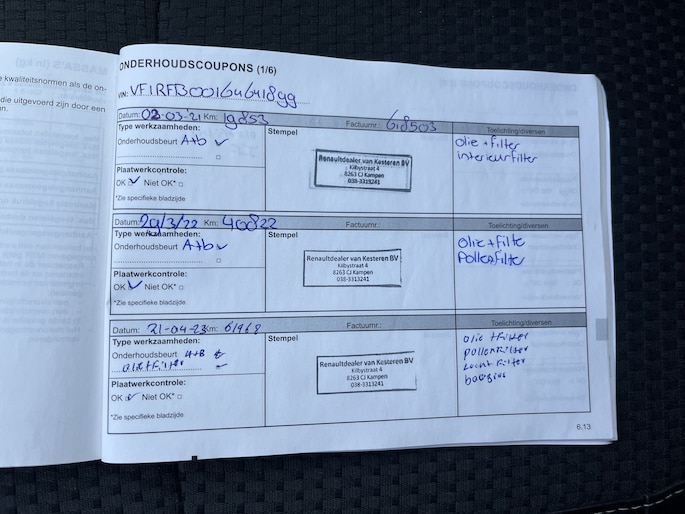 e kwaliteitsnormen als de on-
die uitgevoerd zijn door een
n.
ONDERHOUDSCOUPONS (1/6)
VIN: VF1RFB00164641899
Datum: 02-03-'21 Km: 19853 Factuurnr.: 618503 Toelichting/diversen
Type werkzaamheden:
Onderhoudsbeurt A+b ✓
Stempel
Renaultdealer van Kesteren BV
Kilbystraat 4
8263 CJ Kampen
038-3313241
olie + filter
interieurfilter
Plaatwerkcontrole:
OK ✓ Niet OK* □
*Zie specifieke bladzijde
Datum: 29/3/22 Km: 40822 Factuurnr.: Toelichting/diversen
Type werkzaamheden:
Onderhoudsbeurt A+b ✓
Stempel
Renaultdealer van Kesteren BV
Kilbystraat 4
8263 CJ Kampen
038-3313241
Olie + filte
Pollenfilter
Plaatwerkcontrole:
OK ✓ Niet OK* □
*Zie specifieke bladzijde
Datum: 21-04-23 Km: 61968 Factuurnr.: Toelichting/diversen
Type werkzaamheden:
Onderhoudsbeurt A+B
olie+Filter
Stempel
Renaultdealer van Kesteren BV
Kilbystraat 4
8263 CJ Kampen
038-3313241
olie + Filter
pollenFilter
Lucht Filter
bougies
Plaatwerkcontrole:
OK ✓ Niet OK* □
*Zie specifieke bladzijde
6.13